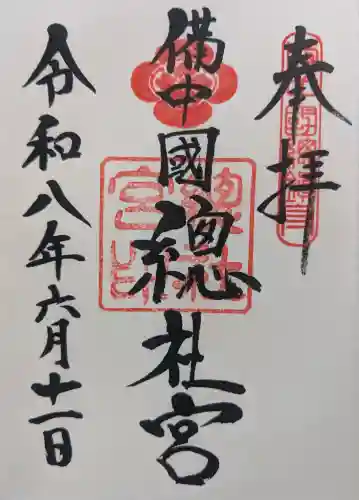 奉拝
備中國總社宮
令和八年六月十一日